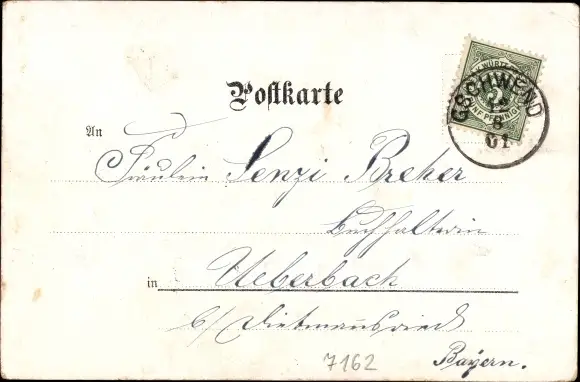 Postkarte
K. WÜRTT.
5
FÜNF PFENNIG
GSCHWEND
12
8
01
An
Fräulein Senzi Breher
Buchhalterin
in Ueberbach
b/ Dietmannsried
7162
Bayern.